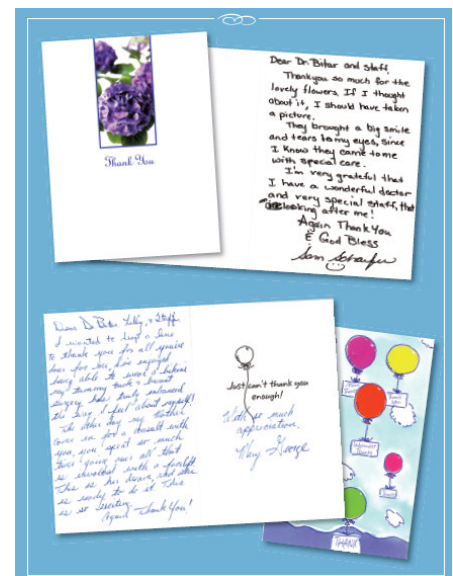 Thank You
Dear Dr. Bitar and staff,
Thankyou so much for the
lovely flowers. If I thought
about it, I should have taken
a picture.
They brought a big smile
and tears to my eyes, since
I know they came to me
with special care.
I'm very grateful that
I have a wonderful doctor
and very special staff, that
looking after me!
Again Thank You
& God Bless
Dear Dr. Bitar, & Staff,
I wanted to drop a line
to thank you for all you've
done for me. I've enjoyed
being able to wear a bikini
my tummy tuck & breast
surgery has truly enhanced
the way I feel about myself!
The other day my mother
came in for a consult with
you, you spent so much
time going over all that
is involved with a facelift
This is her dream, and she
is ready to do it. This
is so exciting
Again Thank You!
Just can't thank you
enough!
With so much
appreciation,
Mary George
THANK